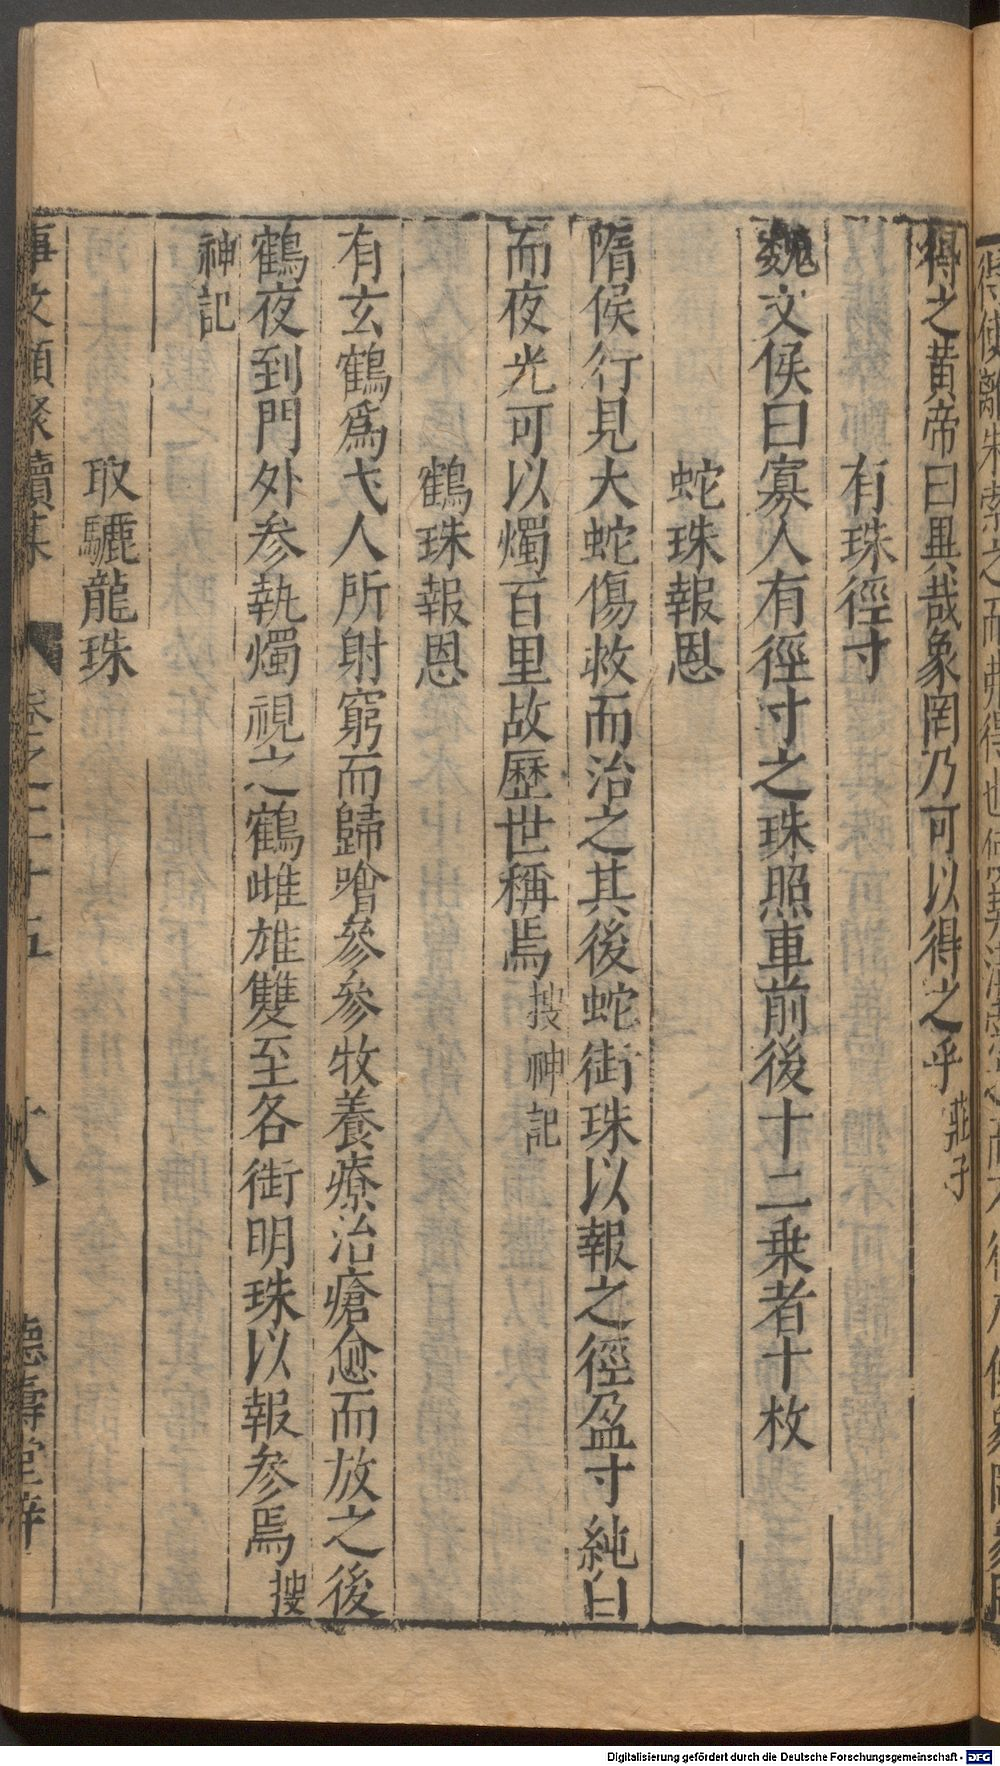 得之黄帝曰異哉象罔乃可以得之乎莊子
有珠徑寸
魏文侯曰寡人有徑寸之珠照車前後十二乗者十枚
蛇珠報恩
隋侯行見大蛇傷救而治之其後蛇街珠以報之徑盈寸純白
而夜光可以燭百里故歷世稱焉搜神記
鶴珠報恩
有玄鶴爲弋人所射窮而歸噲參參牧養療治瘡愈而放之後
鶴夜到門外參執燭視之鶴雌雄雙至各街明珠以報參焉搜
神記
取驪龍珠
事文類聚續集 卷之二十五 十八 德壽堂梓
Digitalisierung gefördert durch die Deutsche Forschungsgemeinschaft - DFG